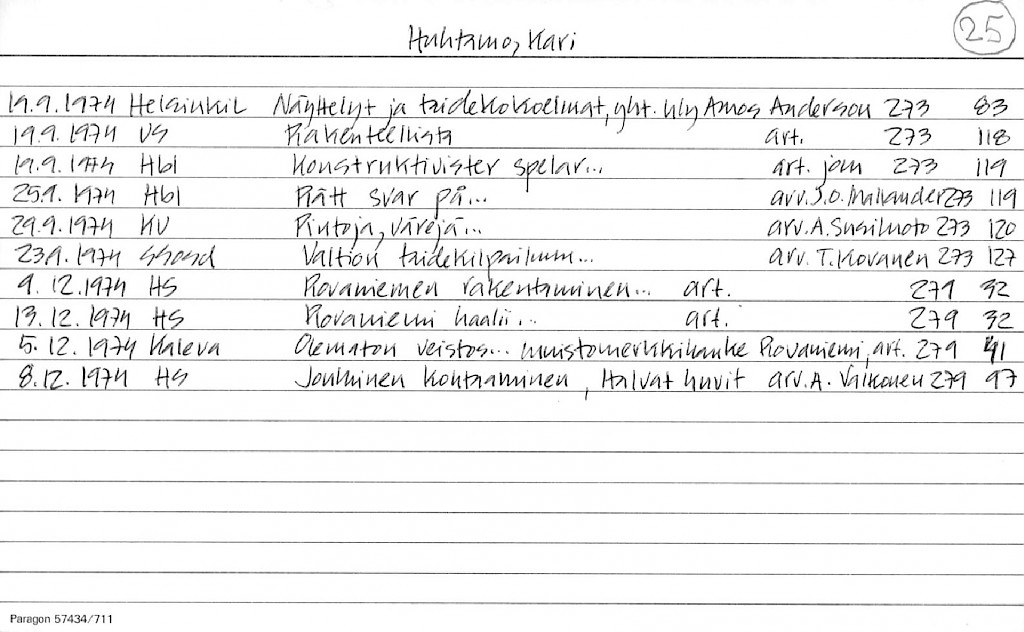 25
Huhtamo, Kari
19.9.1974 Helsinkil Näyttelyt ja taidekokoelmat, yht. näy Amos Anderson 273 83
19.9.1974 US Rakenteellista art. 273 118
19.9.1974 Hbl Konstruktivister spelar... art. jom 273 119
25.9. 1974 Hbl Rätt svar på... arv. J.O. Mallander 273 119
29.9.1974 KU Pintoja, värejä... arv. A. Susiluoto 273 120
23.9. 1974 Valtion taidekilpailuun... arv. T. Kovanen 273 127
9. 12.1974 HS Rovaniemen rakentaminen... art. 279 32
13. 12. 1974 HS Rovaniemi haalii... art. 279 32
5. 12. 1974 Kaleva Olematon veistos... muistomerkkihanke Rovaniemi, art. 279 41
8.12. 1974 HS Jouluinen kontaaminen, Halvat huvit arv. A. Valkonen 279 97
Paragon 57434/711